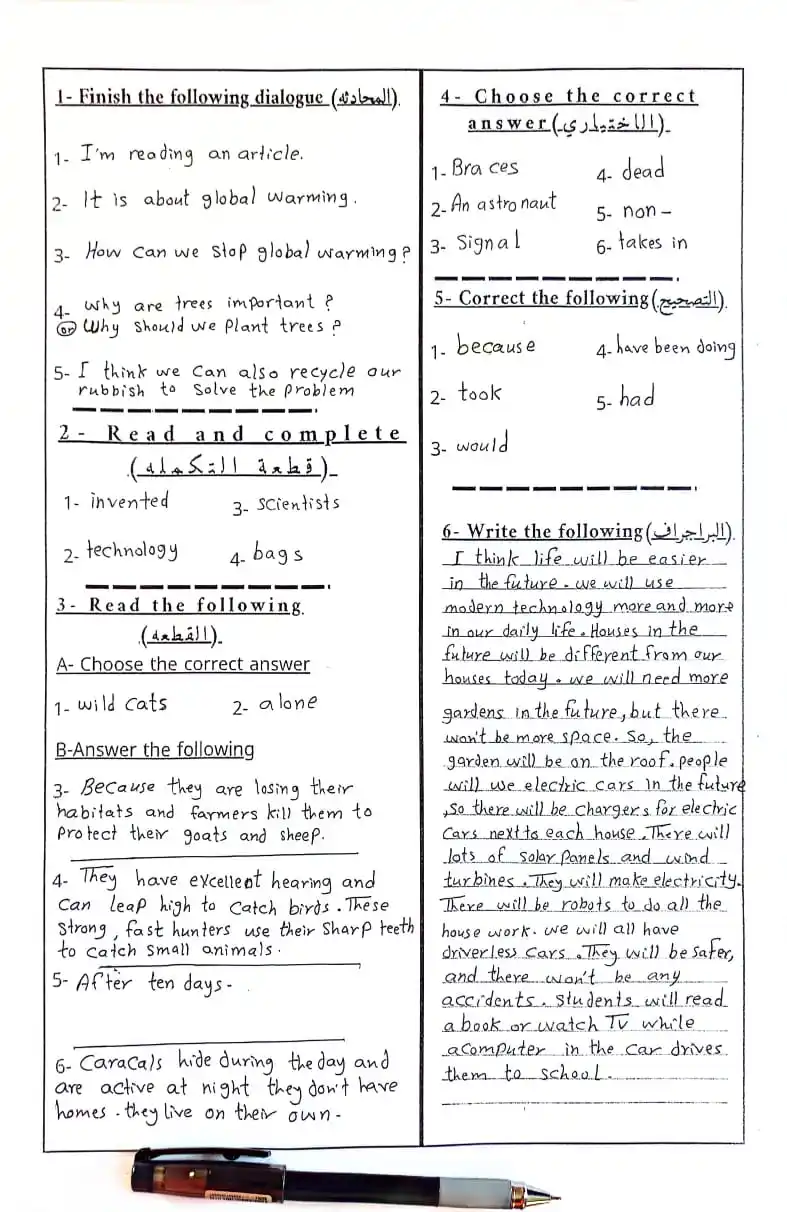 1- Finish the following dialogue (المحادثة).
1- I'm reading an article.
2- It is about global warming.
3- How can we stop global warming?
4- why are trees important?
or Why should we plant trees?
5- I think we can also recycle our
rubbish to solve the problem
2- Read and complete
(قطعة التكملة).
1- invented
3- scientists
2- technology
4- bags
3- Read the following.
(القطعة).
A- Choose the correct answer
1- wild cats
2- alone
B-Answer the following
3- Because they are losing their
habitats and farmers kill them to
protect their goats and sheep.
4- They have excellent hearing and
can leap high to catch birds. These
strong, fast hunters use their sharp teeth
to catch small animals.
5- After ten days-
6- Caracals hide during the day and
are active at night they don't have
homes. they live on their own-
4- Choose the correct
answer (الاختيارى).
1- Braces
4- dead
2- An astronaut
5- non-
3- Signal
6- takes in
5- Correct the following (التصحيح).
1- because
4- have been doing
2- took
5- had
3- would
6- Write the following (البراجراف).
I think life will be easier
in the future. we will use
modern technology more and more
in our daily life. Houses in the
future will be different from our
houses today. we will need more
gardens in the future, but there
won't be more space. So, the
garden will be on the roof. people
will use electric cars in the future
,So there will be chargers for electric
cars next to each house. There will
lots of solar panels and wind
turbines. They will make electricity.
There will be robots to do all the
house work. we will all have
driverless cars. They will be safer,
and there won't be any
accidents. students will read
a book or watch TV while
a computer in the car drives
them to school.